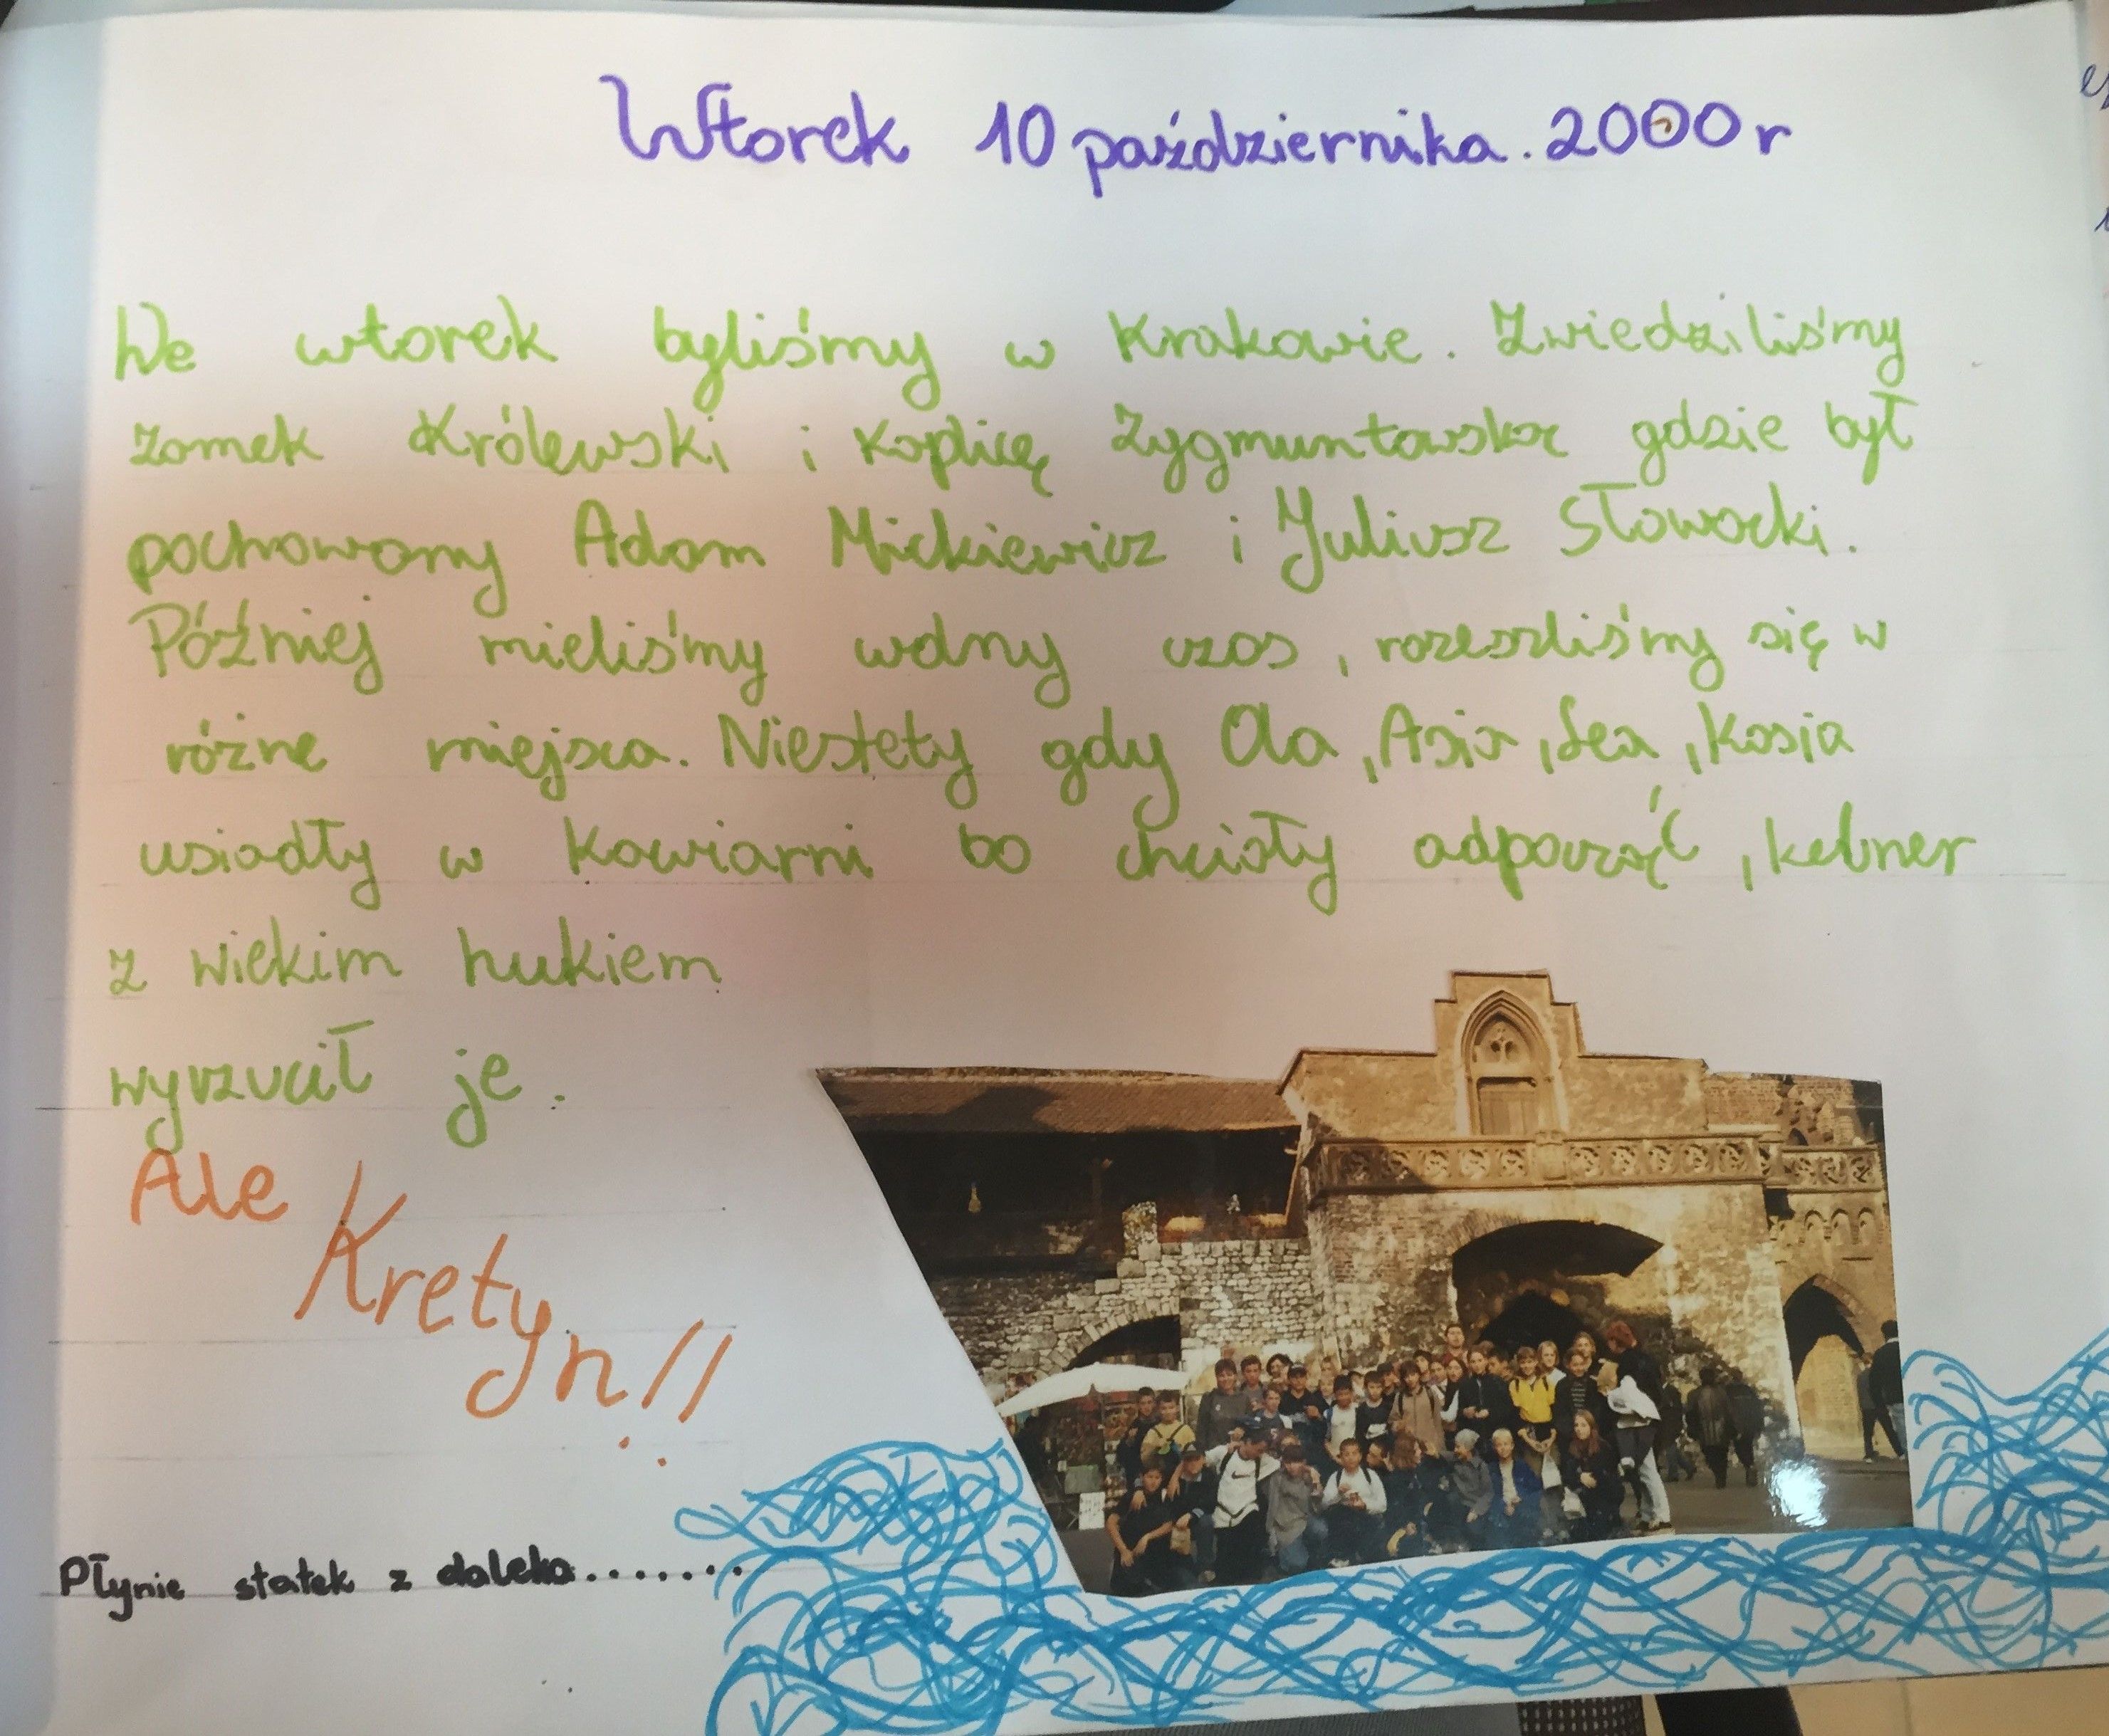 Wtorek 10 października. 2000 r
We wtorek byliśmy w Krakowie. Zwiedziliśmy
zamek Królewski i Kaplicę Zygmuntowską gdzie był
pochowany Adam Mickiewicz i Juliusz Słowacki.
Później mieliśmy wolny czas, rozeszliśmy się w
różne miejsca. Niestety gdy Ola, Asia, Lea, Kasia
usiadły w kawiarni bo chciały odpocząć, kelner
z wiekim hukiem
wyrzucił je.
Ale
Kretyn!!
Płynie statek z daleka.......